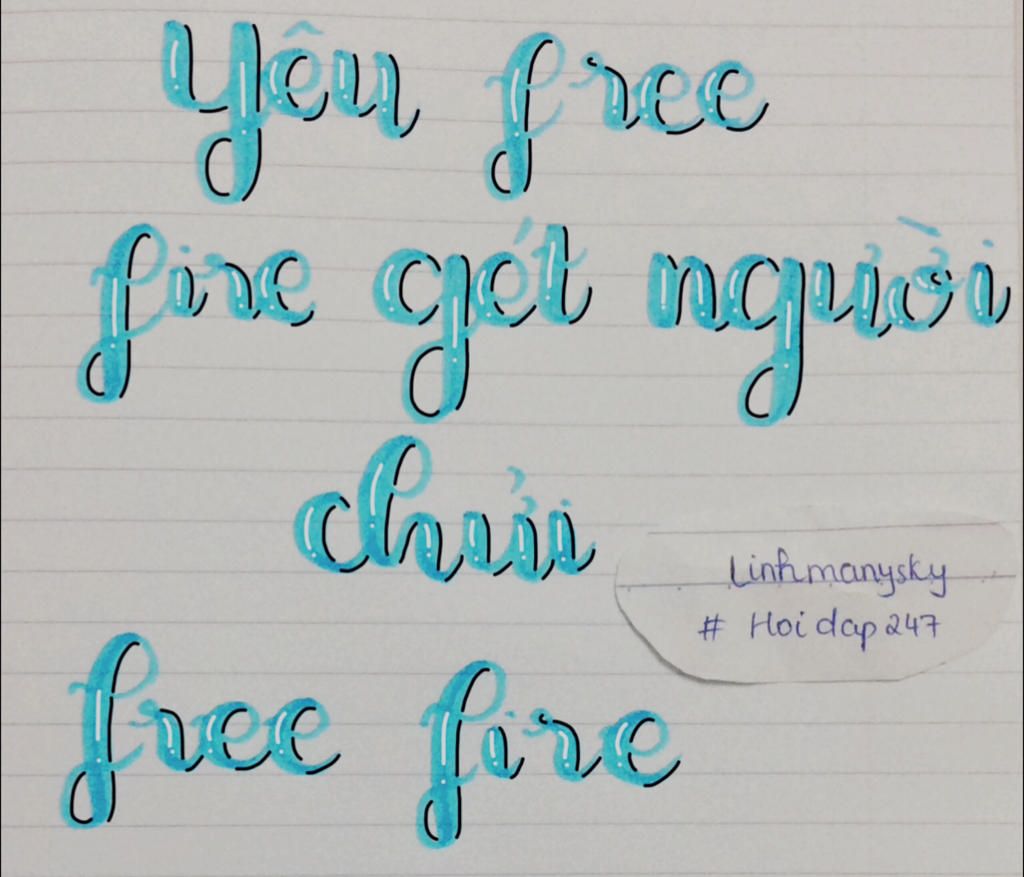 Yêu free
fire gét người
chửi
free fire
Linhmanysky
# Hoidap247